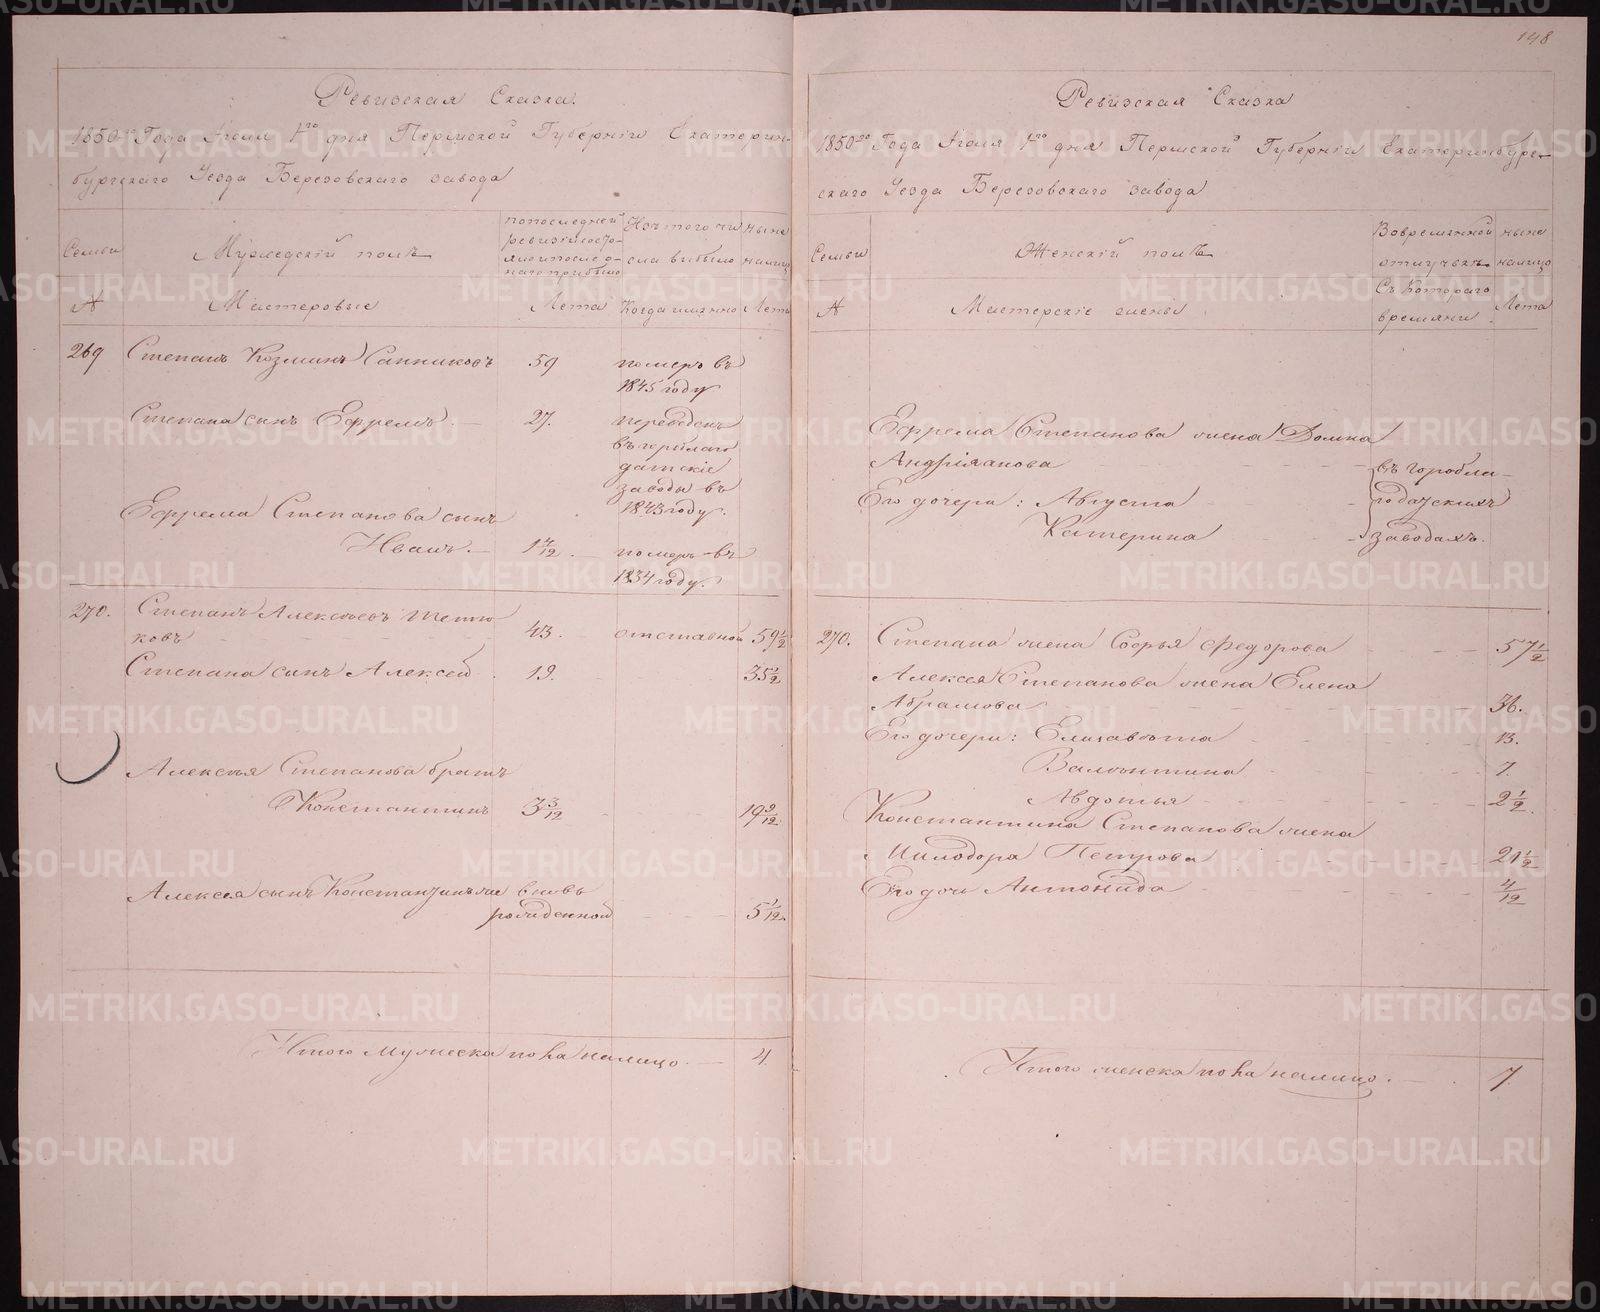 148
Ревизская Сказка.
1850го Года Июля 1го дня Пермской Губернiи Екатерин-
бургскаго Уезда Березовскаго завода
Семьи
Мужескiй полъ
попоследней
ревизiисосто-
Изъ того чи
сла выбыло
ныне
налицо
№
Мастеровые
Лета
Когда имянно
Лета
269
Степанъ Козминъ Санниковъ
59
померъ въ
1845 году
Степана сынъ Ефремъ.
27.
переведенъ
въ горобла
датскiе
заводы въ
1843 году.
Ефрема Степанова сынъ
Иванъ.
1 7/12
померъ въ
1834 году.
270.
Степанъ Алексеевъ Тетю
ковъ
43.
отставной
59 1/2
Степана сынъ Алексей
19.
35 1/2
Алексея Степанова братъ
Константинъ
3 3/12
19 9/12
Алексея сынъ Константинъ
вновь
рожденной
5 1/12
Итого мужеска пола налицо.
4.
Ревизская Сказка
1850го Года Июля 1го дня Пермской Губернiи Екатеринбург-
скаго Уезда Березовскаго завода
Семьи
Женскiй полъ
Вовремянной
отлучкъ
ныне
налицо
№
Мастерскiе жены
Съ Котораго
времяни
Лета
Ефрема Степанова жена Домна
Андрiянова
Его дочери: Августа
Катерина
въ горобла-
годатскихъ
заводахъ.
270.
Степана жена Софья Федорова
57 1/2
Алексея Степанова жена Елена
Абрамова
36.
Его дочери: Елизавета
13.
Валентина
7.
Авдотья
2 1/2
Константина Степанова жена
Милодора Петрова
21 1/2
Его дочь Антонида
4/12
Итого женска пола налицо.
7.
METRIKI.GASO-URAL.RU